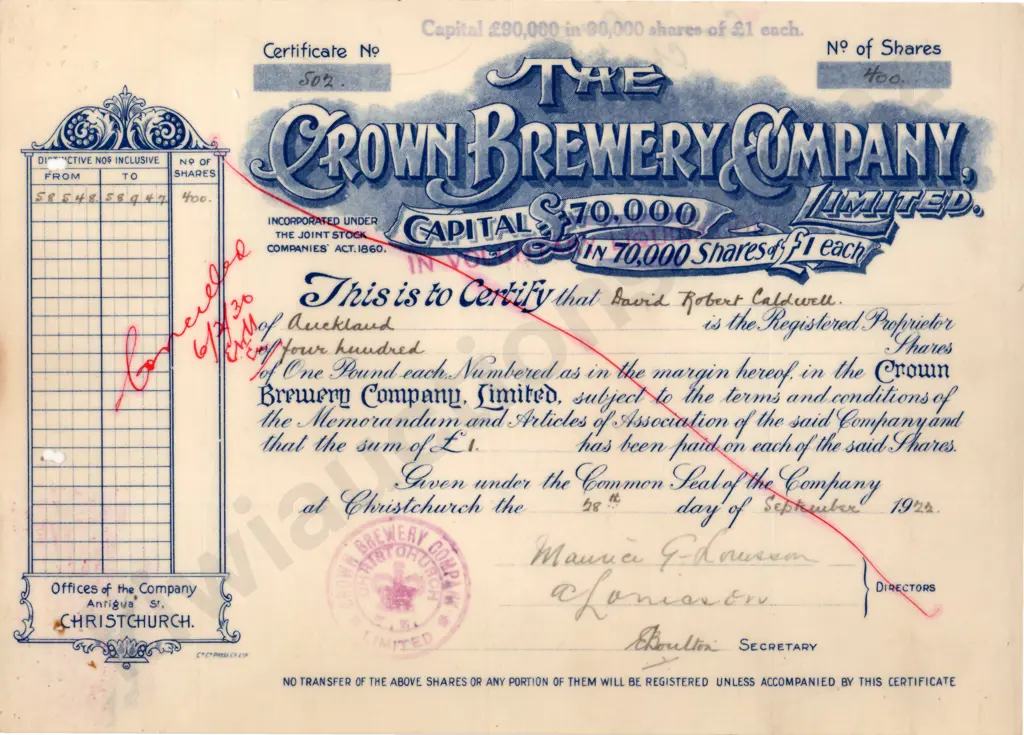 Capital £90,000 in 90,000 shares of £1 each.
Certificate No
502.
No of Shares
400.
THE
CROWN BREWERY COMPANY,
LIMITED.
CAPITAL £70,000
IN 70,000 Shares of £1 each
INCORPORATED UNDER
THE JOINT STOCK
COMPANIES' ACT. 1860.
DISTINCTIVE NOS INCLUSIVE
NO OF
SHARES
FROM
TO
58548
58947
400.
Cancelled
6/2/36
This is to Certify that David Robert Caldwell.
of Auckland is the Registered Proprietor
of four hundred Shares
of One Pound each, Numbered as in the margin hereof, in the Crown
Brewery Company, Limited, subject to the terms and conditions of
the Memorandum and Articles of Association of the said Company and
that the sum of £1. has been paid on each of the said Shares.
Given under the Common Seal of the Company
at Christchurch the 28th day of September 1922.
CROWN BREWERY COMPANY
CHRISTCHURCH
LIMITED
Maurice G. Louisson
A Louisson
DIRECTORS
Boulton SECRETARY
Offices of the Company
Antigua St,
CHRISTCHURCH.
NO TRANSFER OF THE ABOVE SHARES OR ANY PORTION OF THEM WILL BE REGISTERED UNLESS ACCOMPANIED BY THIS CERTIFICATE